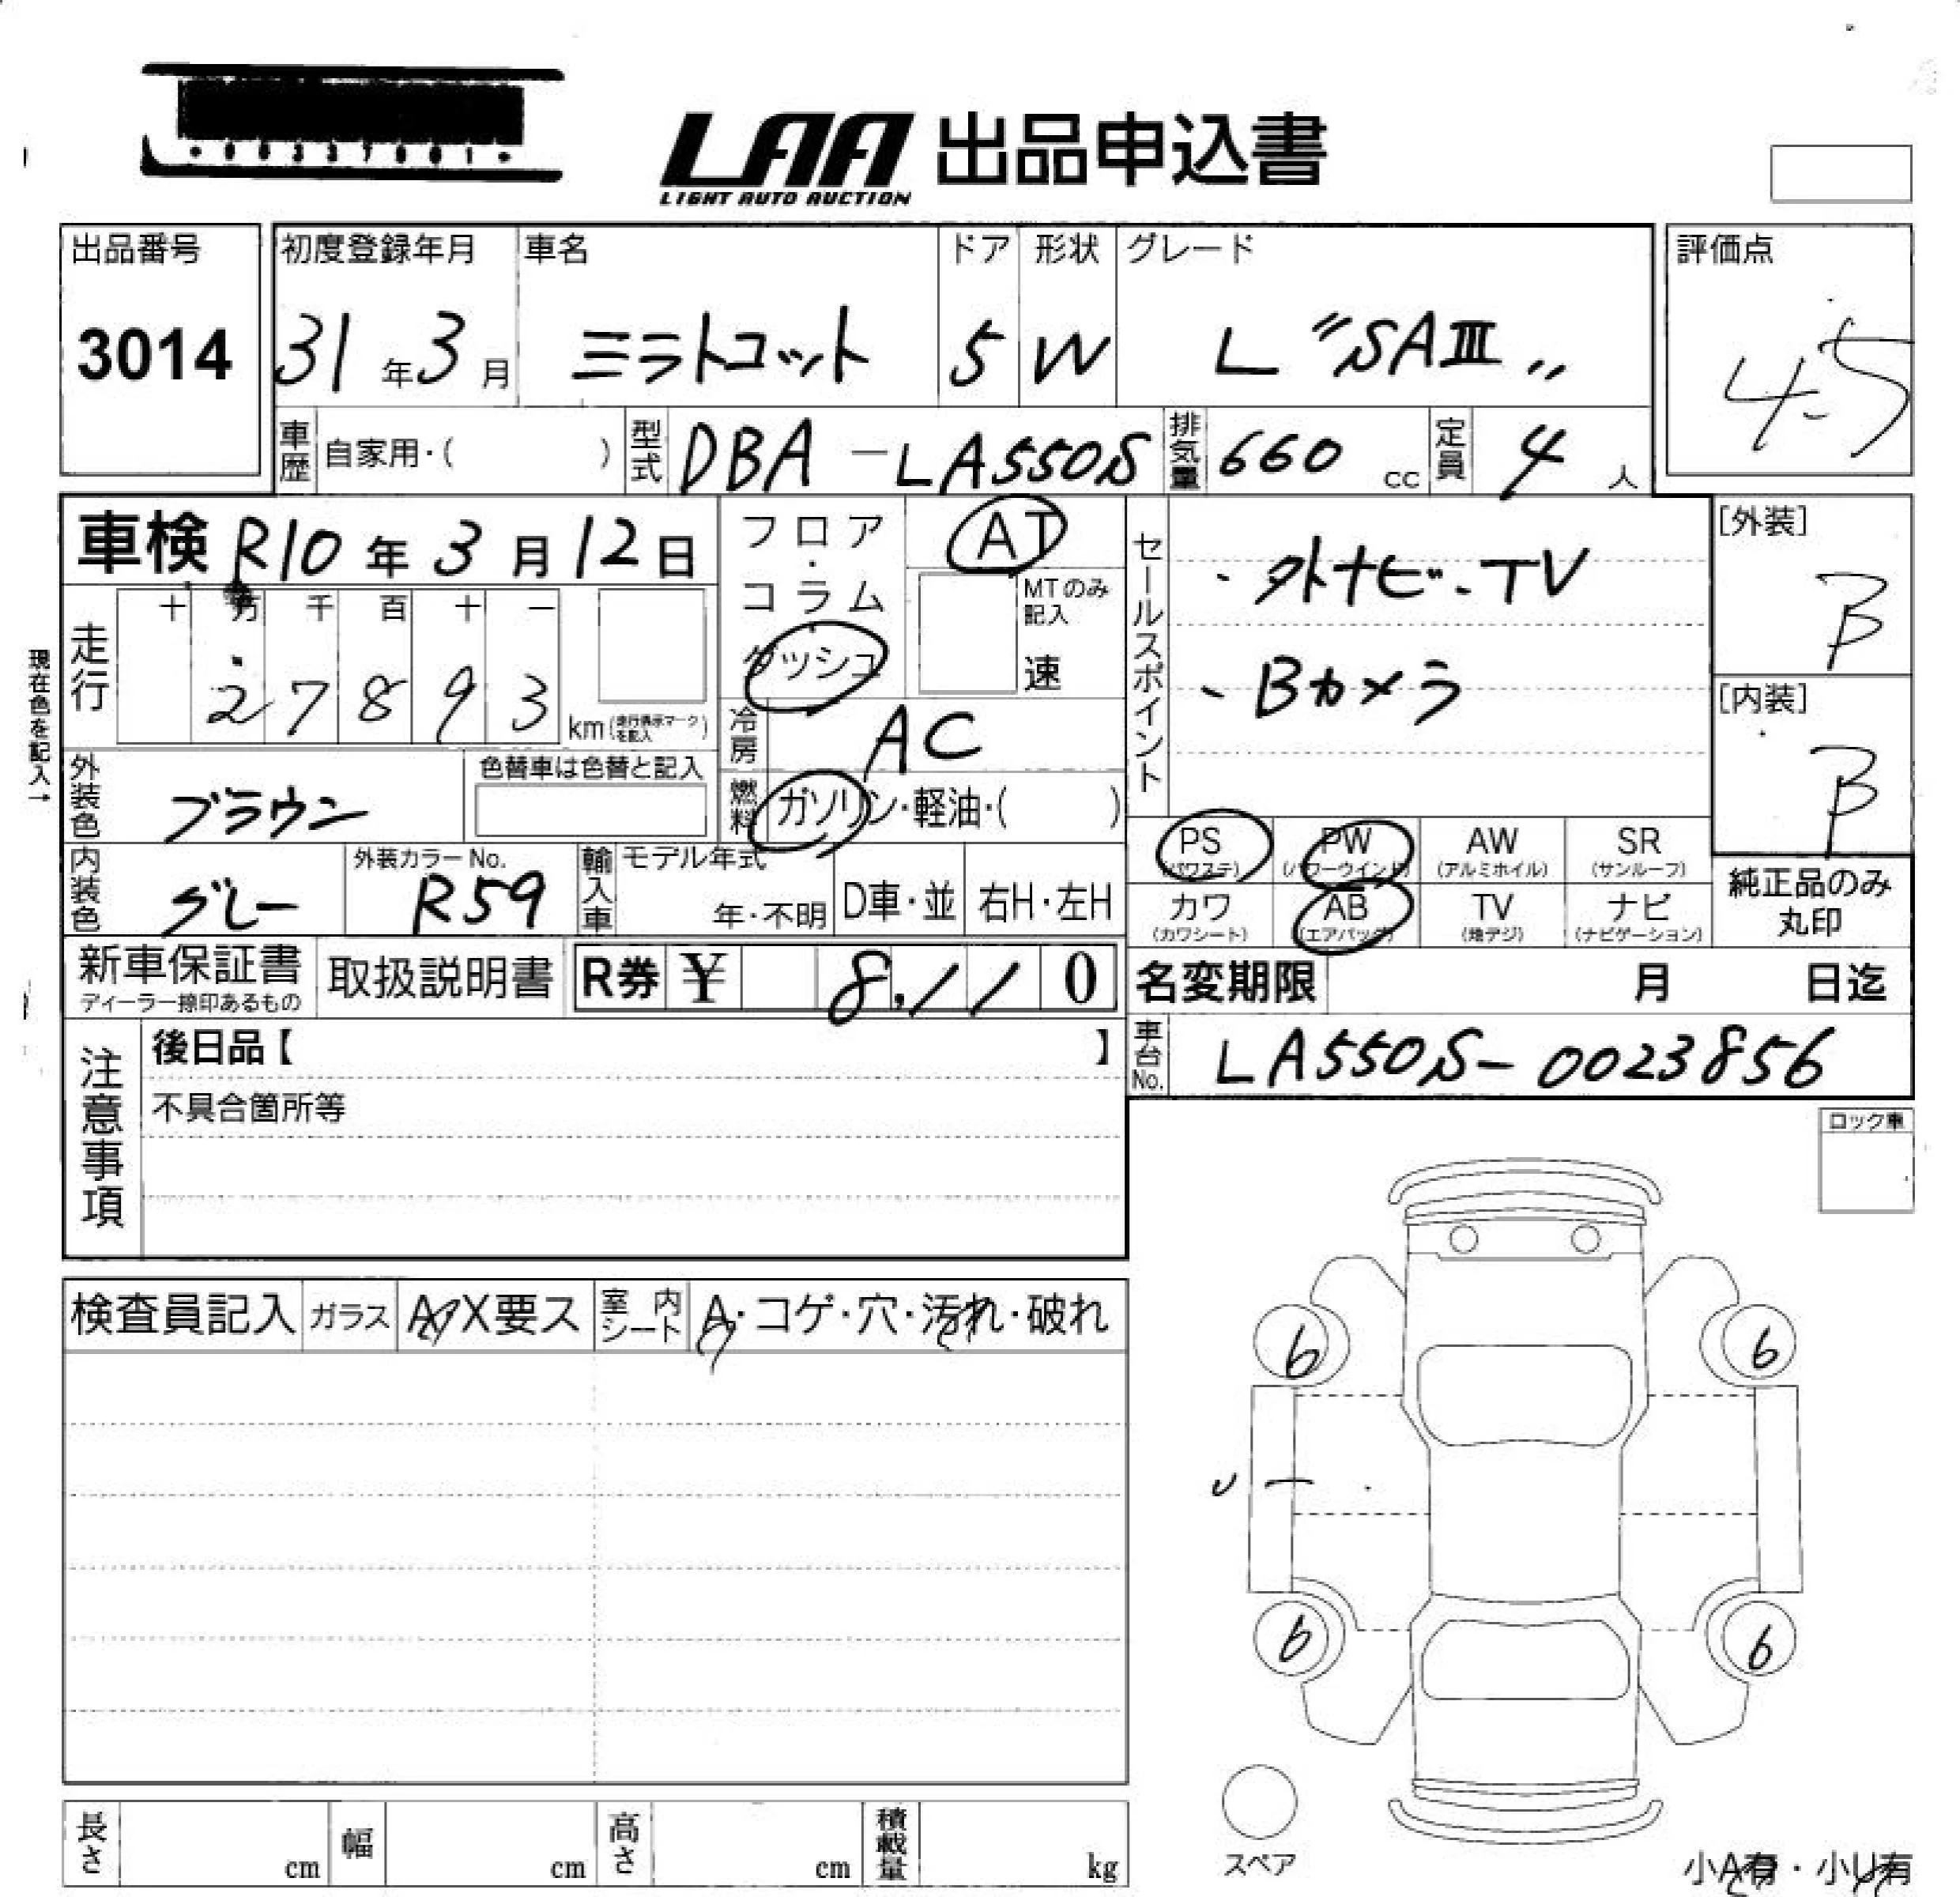 ・00337001・
LAA 出品申込書
LIGHT AUTO AUCTION
出品番号 初度登録年月 車名 ドア 形状 グレード 評価点
3014 31年3月 ミラトコット 5 W L "SAⅢ" 4.5
車歴 自家用・( ) 型式 DBA-LA550S 排気量 660 cc 定員 4 人
車検 R10年3月12日
フロア・コラム ダッシュ
AT
MTのみ記入
速
セールスポイント
・外ナビ・TV
、Bカメラ
[外装]
B
[内装]
B
現在色を記入→
走行 十 万 千 百 十 一
2 7 8 9 3 km(走行表示マークを記入)
冷房 AC
外装色 ブラウン 色替車は色替と記入
燃料 ガソリン・軽油・( )
内装色 グレー 外装カラーNo. R59
輸入車 モデル年式 年・不明 D車・並 右H・左H
PS (パワステ) PW (パワーウインド) AW (アルミホイル) SR (サンルーフ)
カワ (カワシート) AB (エアバッグ) TV (地デジ) ナビ (ナビゲーション)
純正品のみ丸印
新車保証書 取扱説明書 R券 ¥ 8,110
ディーラー捺印あるもの
名変期限 月 日迄
車台No. LA550S-0023856
注意事項
後日品【 】
不具合箇所等
ロック車
検査員記入 ガラス A X要ス 室内シート A・コゲ・穴・汚れ・破れ
6 6
6 6
スペア
長さ cm 幅 cm 高さ cm 積載量 kg
小A有・小U有